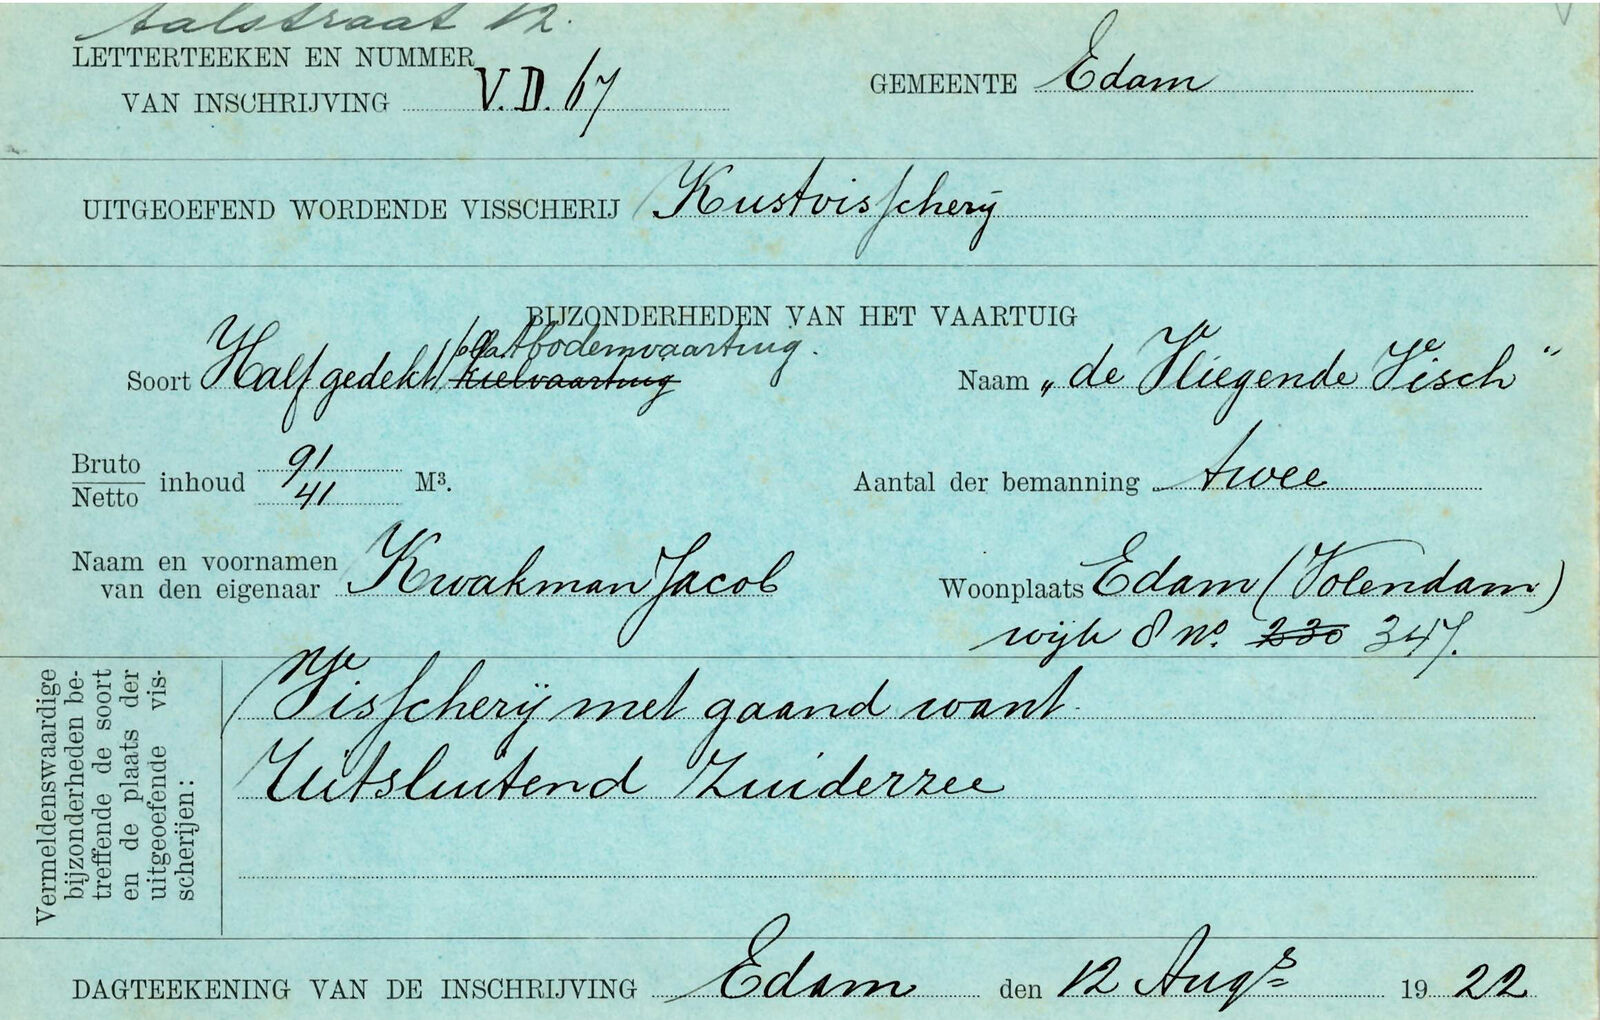 Aalstraat 12.
LETTERTEEKEN EN NUMMER
VAN INSCHRIJVING V.D. 67
GEMEENTE Edam
UITGEOEFEND WORDENDE VISSCHERIJ Kustvisscherij
BIJZONDERHEDEN VAN HET VAARTUIG
platbodemvaartuig.
Soort Half gedekt kielvaartuig
Naam „de Vliegende Visch"
Bruto inhoud 91 M³.
Netto 41
Aantal der bemanning twee
Naam en voornamen
van den eigenaar Kwakman Jacob
Woonplaats Edam (Volendam)
wijk 8 no. 230 347.
Vermeldenswaardige
bijzonderheden be-
treffende de soort
en de plaats der
uitgeoefende vis-
scherijen:
Visscherij met gaand want.
Uitsluitend Zuiderzee
DAGTEEKENING VAN DE INSCHRIJVING Edam den 12 Augs 1922